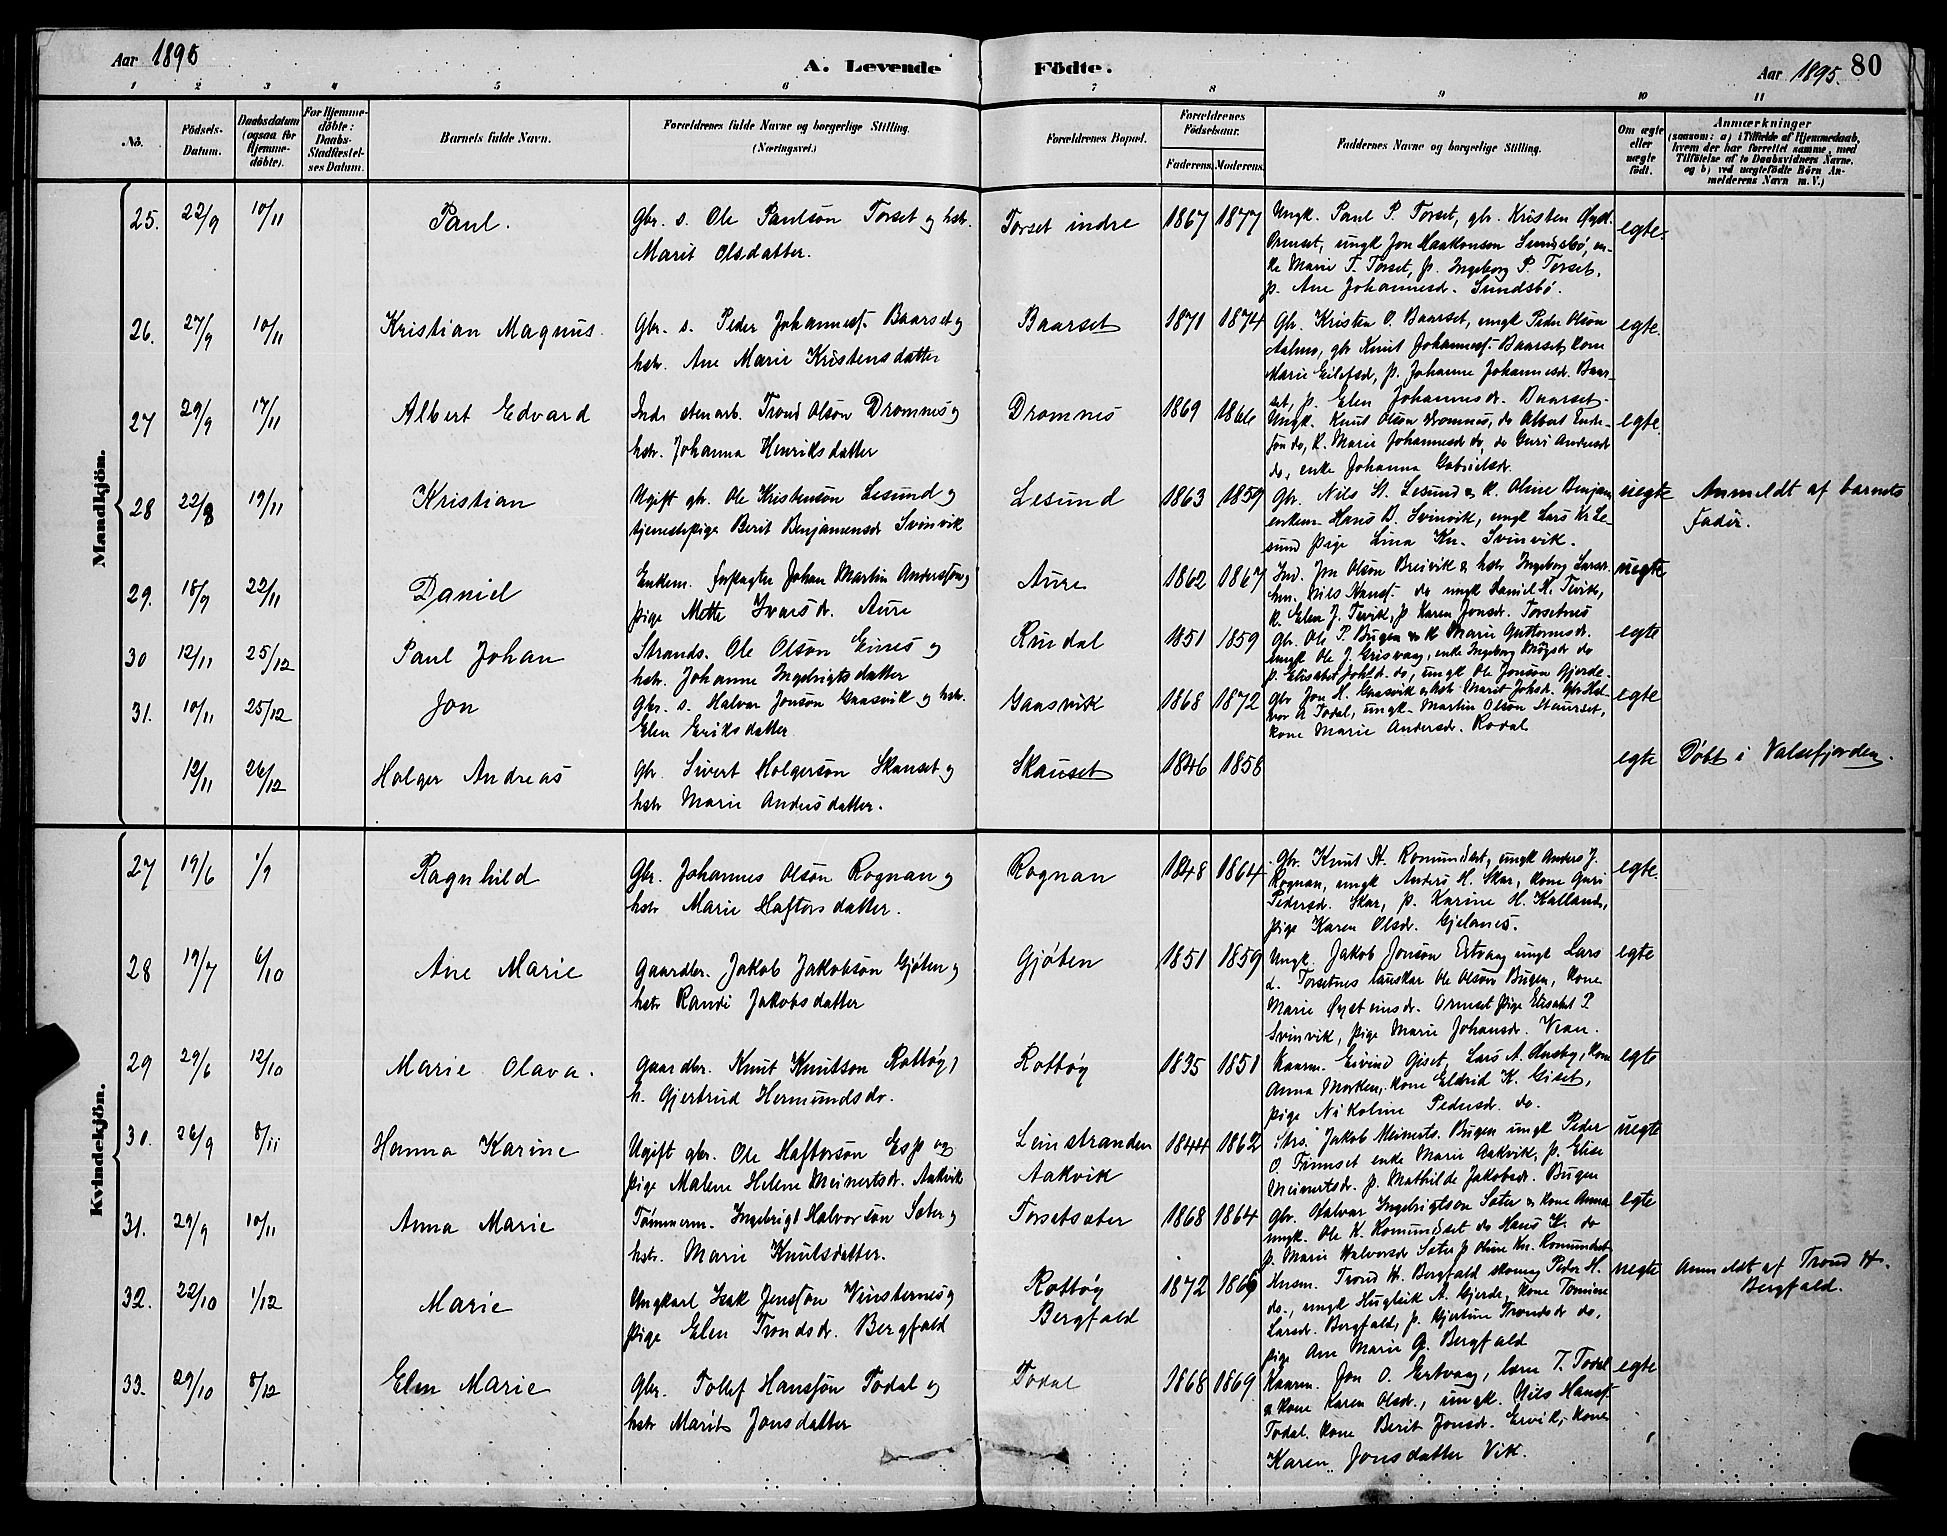 Aar 1895
A. Levende Födte.
Aar 1895.
80
1 2 3 4 5 6 7 8 9 10 11
No.
Födsels-
Datum.
Daabsdatum
(ogsaa for
Hjemme-
döbte).
For Hjemme-
döbte:
Daabs-
Stadfæstel-
ses Datum.
Barnets fulde Navn.
Forældrenes fulde Navne og borgerlige Stilling.
(Næringsvei.)
Forældrenes Bopæl.
Forældrenes
Födselsaar.
Faderens. Moderens.
Faddernes Navne og borgerlige Stilling.
Om ægte
eller
uægte
födt.
Anmærkninger
(saasom: a) i Tilfælde af Hjemmedaab,
hvem der har forrettet samme, med
Tilföielse af to Daabsvidners Navne,
og b) ved uægtefödte Börn An-
melderens Navn m. V.)
Mandkjön.
25. 22/9 10/11 Paul. Gbr. s. Ole Paulsön Torset og hstr.
Marit Olsdatter.
Torset indre 1867 1877
Ungk. Paul P. Torset, gbr. Kristen Øyst.
Ormset, ungk Jon Haakonsen Sundsbö, en-
ke Marie T. Torset, p. Ingeborg P. Torset,
p. Ane Johannesd. Sundsbö.
egte.
26. 27/9 10/11 Kristian Magnus. Gbr. s. Peder Johanness. Baarset og
hstr. Ane Marie Kristensdatter
Baarset 1871 1874
Gbr. Kristen O. Baarset, ungk Peder Olsön
Aalmo, gbr Knut Johanness. Baarset, kone
Marie Eilefsd, p. Johanne Johannesd. Baar-
set, p. Elen Johannesdr. Baarset.
egte.
27 29/9 17/11 Albert Edvard Inds. stenarb. Trond Olsön Dromnes og
hstr. Johanna Henriksdatter
Dromnes 1869 1866
Ungk. Knut Olsön Dromnes, do Albert Ende-
sön do, k. Marie Johannesdr do, do Guri Andersd
do, enke Johanna Gabrielsdr.
egte.
28 22/8 19/11 Kristian Ugift gbr. Ole Kristensön Lesund og
tjenestepige Berit Benjamensdr Svinvik
Lesund 1863 1859
Gbr. Nils St. Lesund & k. Oline Benjam
enkem. Hans B. Svinvik, ungk Lars Kr. Le-
sund pige Lina Kr. Svinvik.
uegte Anmeldt af barnets
Fader.
29. 18/9 22/11 Daniel Enkem. forpagter Johan Martin Andersson og
pige Mette Ivarsdr. Aure
Aure 1862 1867
Ind. Jon Olsön Breivik & hstr Ingeborg Larsdr.
hm. Nils Hanss. do ungk Daniel H. Tevik,
k. Elen J. Tevik, p Karen Jonsdr. Torsetnes
uegte
30 12/11 25/12 Paul Johan Strands. Ole Olsön Eines og
hstr. Johanne Ingebrigtsdatter
Rundal 1851 1859
Gbr. Ole P. Bugen & k Marie Guttormsdr.
ungk Ole J. Grisvaag, enke Ingeborg do
p. Elisabet Johsd. do, ungk Ole Jonsön Gjerde-
egte
31. 10/11 25/12 Jon Gbr. s. Halvar Jonsön Gaasvik og hstr.
Elen Eriksdatter
Gaasvik 1868 1872
Gbr Jon H. Gaasvik & hstr. Marit Johsdr. Gbr Hal-
vor A Todal, ungk. Martin Olsön Staurset,
kone Marie Andersdr. Rodal
egte
12/11 26/12 Holger Andreas Gbr. Sivert Holgersön Skauset og
hstr Marie Andersdatter.
Skauset 1846 1858
egte Döbt i Valsefjorden.
Kvindekjön.
27 19/6 1/9 Ragnhild Gbr. Johannes Olsön Rognan og
hstr Marie Haftorsdatter.
Rognan 1848 1864
Gbr. Knut H. Romundset, ungk Anders J.
Rognan, ungk Anders H. Skar, kone Guri
Pedersd. Skar, p. Karine H. Kalland,
pige Karen Olsdr. Gjelanes.
egte.
28 19/7 6/10 Ane Marie Gaardbr. Jakob Jakobsön Gjöten og
hstr Randi Jakobsdatter
Gjöten 1851 1859
Ungk. Jakob Jonsön Ertvaag ungk Lars
L. Torsetnes lauskar Ole Olsön Bugen, kone
Marie Øysteinsdr. Ormset pige Elisabet P.
Svinvik, pige Marie Johansdr. Vean.
egte
29 29/6 12/10 Marie Olava. Gaardbr. Knut Knutson Rottög,
h. Gjertrud Hermundsdr.
Rottög 1835 1851
Kaarm. Eivind Giset, Lars A. Husby, kone
Anna Morken, kone Eldrid K. Giset,
pige Nikoline Pedersd. do.
egte
30. 26/9 8/11 Hanna Karine Ugift gbr. Ole Haftorsön Esp og
pige Malene Helene Meinertsdr. Aakvik
Leinstranden
Aakvik
1844 1862
Strs. Jakob Meinerts. Bugen ungk Peder
O. Finnset enke Marie Aakvik, p. Elise
Meinertsdr. p. Mathilde Jakobsdr. Bugen
uegte
31. 29/9 10/11 Anna Marie Tömmerm. Ingebrigt Halvorsön Sæter og
hstr. Marie Knutsdatter.
Torsetsæter 1868 1864
Gbr. Halvar Ingebrigtsön Sæter & kone Anna
ungk. Ole K. Romundset do Hans K. do
p. Marie Halvorsdr Sæter p Oline Kn. Romundset
egte
32. 22/10 1/12 Marie Ungkarl Isak Jensson Vinsternes og
pige Elen Trondsdr. Bergfald
Rottög
Bergfald
1872 1866
Husm. Trond H. Bergfald skomag Peder H.
do., ungk Hugleik A. Gjerde, kone Tomine
Larsdr. Bergfald, p. Gjertine Trondsdr do,
pige Ane Marie G. Bergfald
uegte Anmeldt af Trond H.
Bergfald.
33. 29/10 8/12 Elen Marie Gbr. Tollef Hansson Todal og
hstr Marit Jonsdatter
Todal 1868 1869
Kaarm. Jon O. Ertvaag, lærer T. Todal
& kone Karen Olsdr., ungk. Nils Hanss.
Todal. kone Berit Jonsdr. Ervik, kone
Karen Jonsdatter Vik.
egte